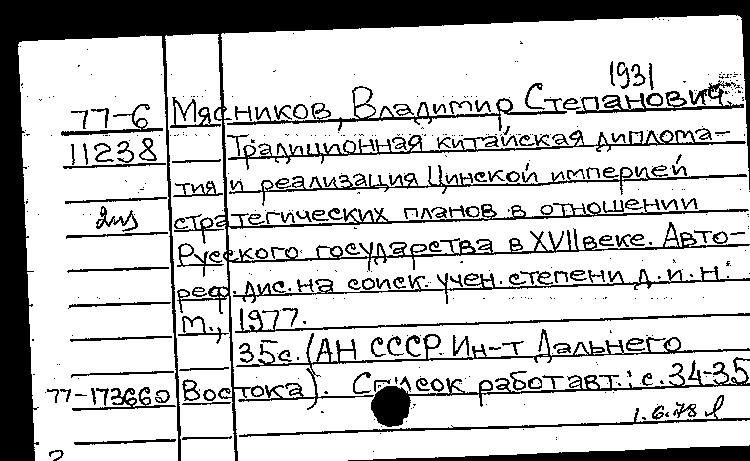 1931
77-6 Мясников, Владимир Степанович.
11238 Традиционная китайская диплома-
тия и реализация Цинской империей
2 стратегических планов в отношении
Русского государства в XVII веке. Авто-
реф. дис. на соиск. учен. степени д. и. н.
М., 1977.
35с. (АН СССР. Ин-т Дальнего
77-173660 Востока). Список работ авт.: с. 34-35
1.6.78